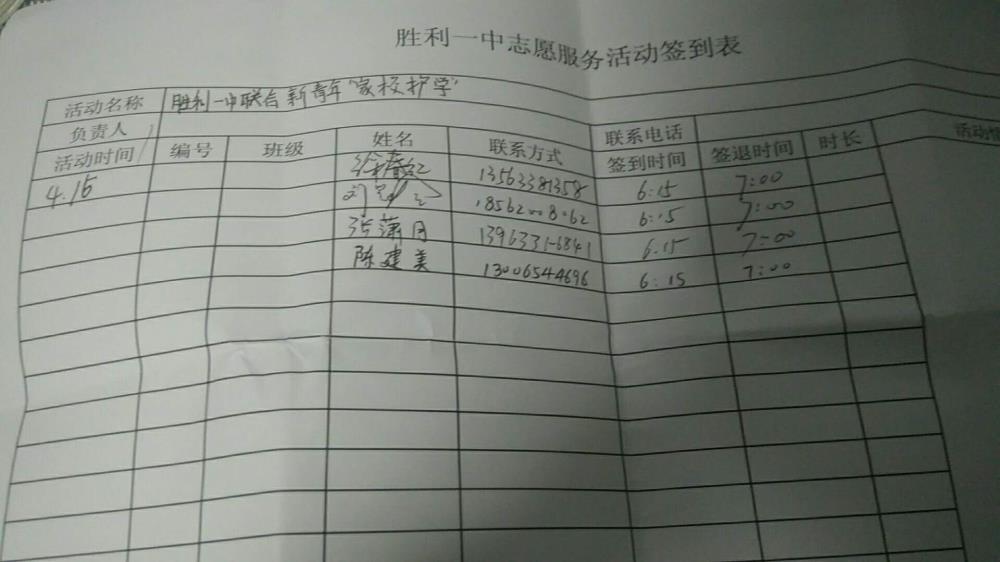 胜利一中志愿服务活动签到表
活动名称 胜利一中联合新青年"家校护学"
负责人 联系电话
活动时间 编号 班级 姓名 联系方式 签到时间 签退时间 时长
4.15 13563381358 6:15 7:00
刘 6:15 7:00
张蒲月 6:15 7:00
陈建美 13006544696 6:15 7:00